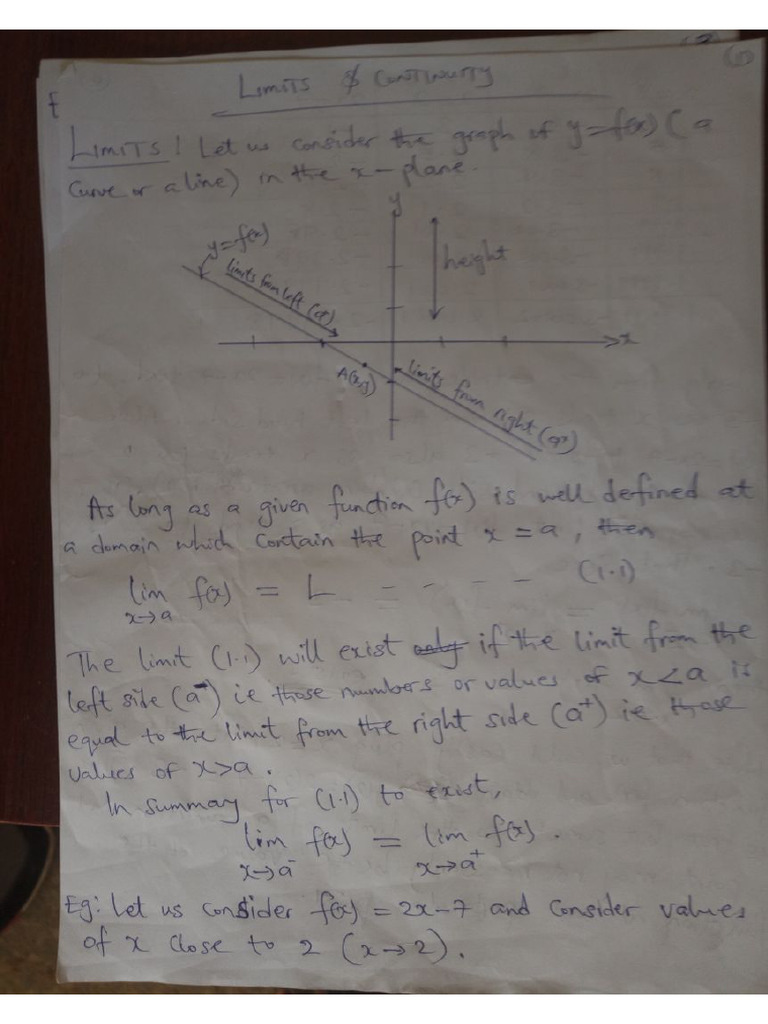 (1)
LIMITS & CONTINUITY
LIMITS! Let us consider the graph of y=f(x) (a
curve or a line) in the x-plane.
y
y=f(x)
height
limits from left (a⁻)
x
A(x,y)
limits from right (a⁺)
As long as a given function f(x) is well defined at
a domain which contain the point x = a, then
lim f(x) = L = - - - - (1.1)
x→a
The limit (1.1) will exist only if the limit from the
left side (a⁻) ie those numbers or values of x<a is
equal to the limit from the right side (a⁺) ie those
values of x>a.
In summary for (1.1) to exist,
lim f(x) = lim f(x).
x→a⁻ x→a⁺
Eg: Let us consider f(x) = 2x-7 and consider values
of x close to 2 (x→2).